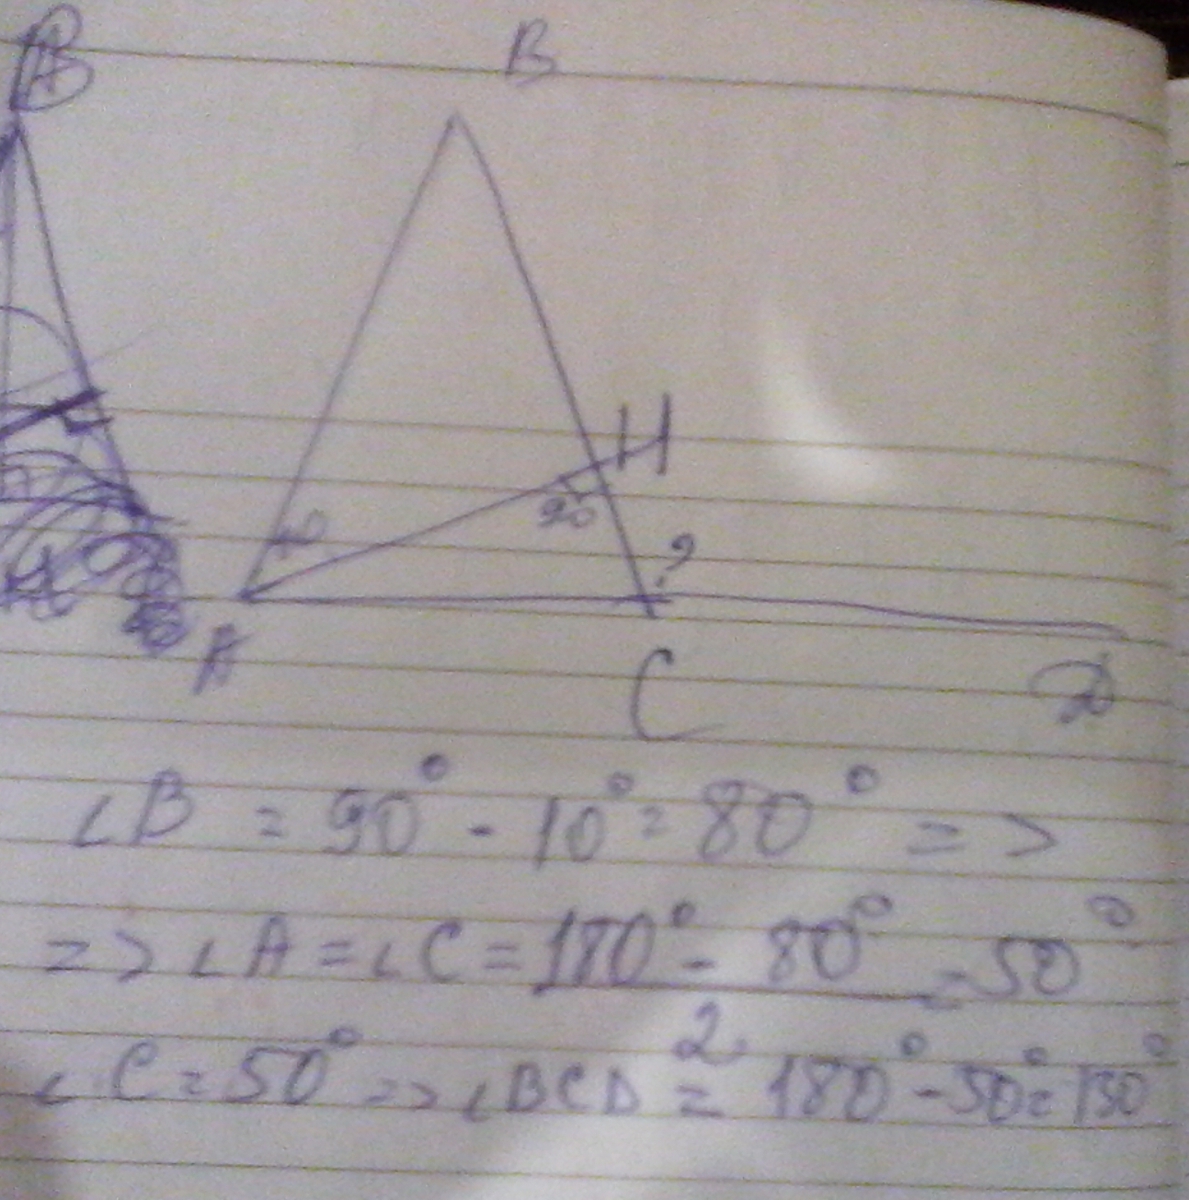 B
B
H
10
90
?
A
C
D
∠B = 90° - 10° = 80° =>
=> ∠A = ∠C = 180° - 80° = 50°
2
∠C = 50° => ∠BCD = 180° - 50° = 130°